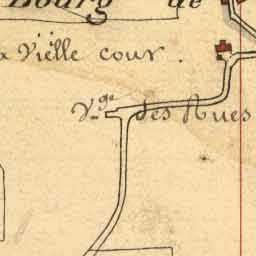 Bourg de
a Vielle cour.
V.ge des Rues